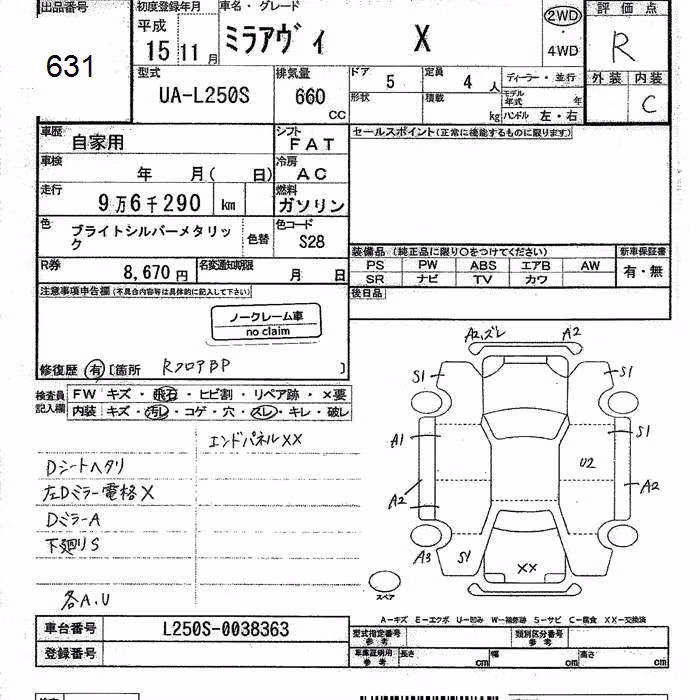 出品番号
631
初度登録年月
平成
15 11 月
車名・グレード
ミラアヴィ X
2WD
・
4WD
評価点
R
外装 内装
C
型式
UA-L250S
排気量
660
CC
ドア 5
定員 4 人
形状
積載 kg
ディーラー・並行
モデル年式 年
ハンドル 左・右
車歴
自家用
シフト
FAT
セールスポイント(正常に機能するものに限ります)
車検
年 月( 日)
冷房
AC
走行
9万6千290 km
燃料
ガソリン
色
ブライトシルバーメタリック
色替
色コード
S28
装備品 (純正品に限り○をつけてください)
新車保証書
PS PW ABS エアB AW
SR ナビ TV カワ
有・無
R券
8,670円
名変通知期限
月 日
後日品
注意事項申告欄(不具合内容等は具体的に記入して下さい)
ノークレーム車
no claim
修復歴 有 [箇所 RフロアBP ]
検査員
記入欄
FW キズ・飛石・ヒビ割・リペア跡・×要
内装 キズ・汚レ・コゲ・穴・スレ・キレ・破レ
エンドパネルXX
Dシートヘタリ
左Dミラー電格X
DミラーA
下廻りS
各A.U
A2,ズレ A2
S1 S1
A1 S1
U2
A2 A2
A3 S1
XX
スペア
A-キズ E-エクボ U-凹み W-補修跡 S-サビ C-腐食 XX-交換済
車台番号 L250S-0038363
登録番号
型式指定番号
参考
類別区分番号
参考
車庫証明用
参考
長さ cm 幅 cm 高さ cm